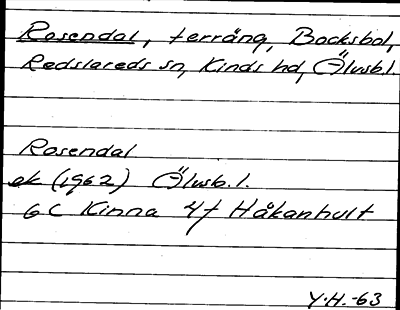 Rosendal, terräng, Bocksbol,
Redslareds sn, Kinds hd, Älvsb.l.
Rosendal
ek (1962) Älvsb.l.
6C Kinna 4f Håkanhult
Y.H.-63